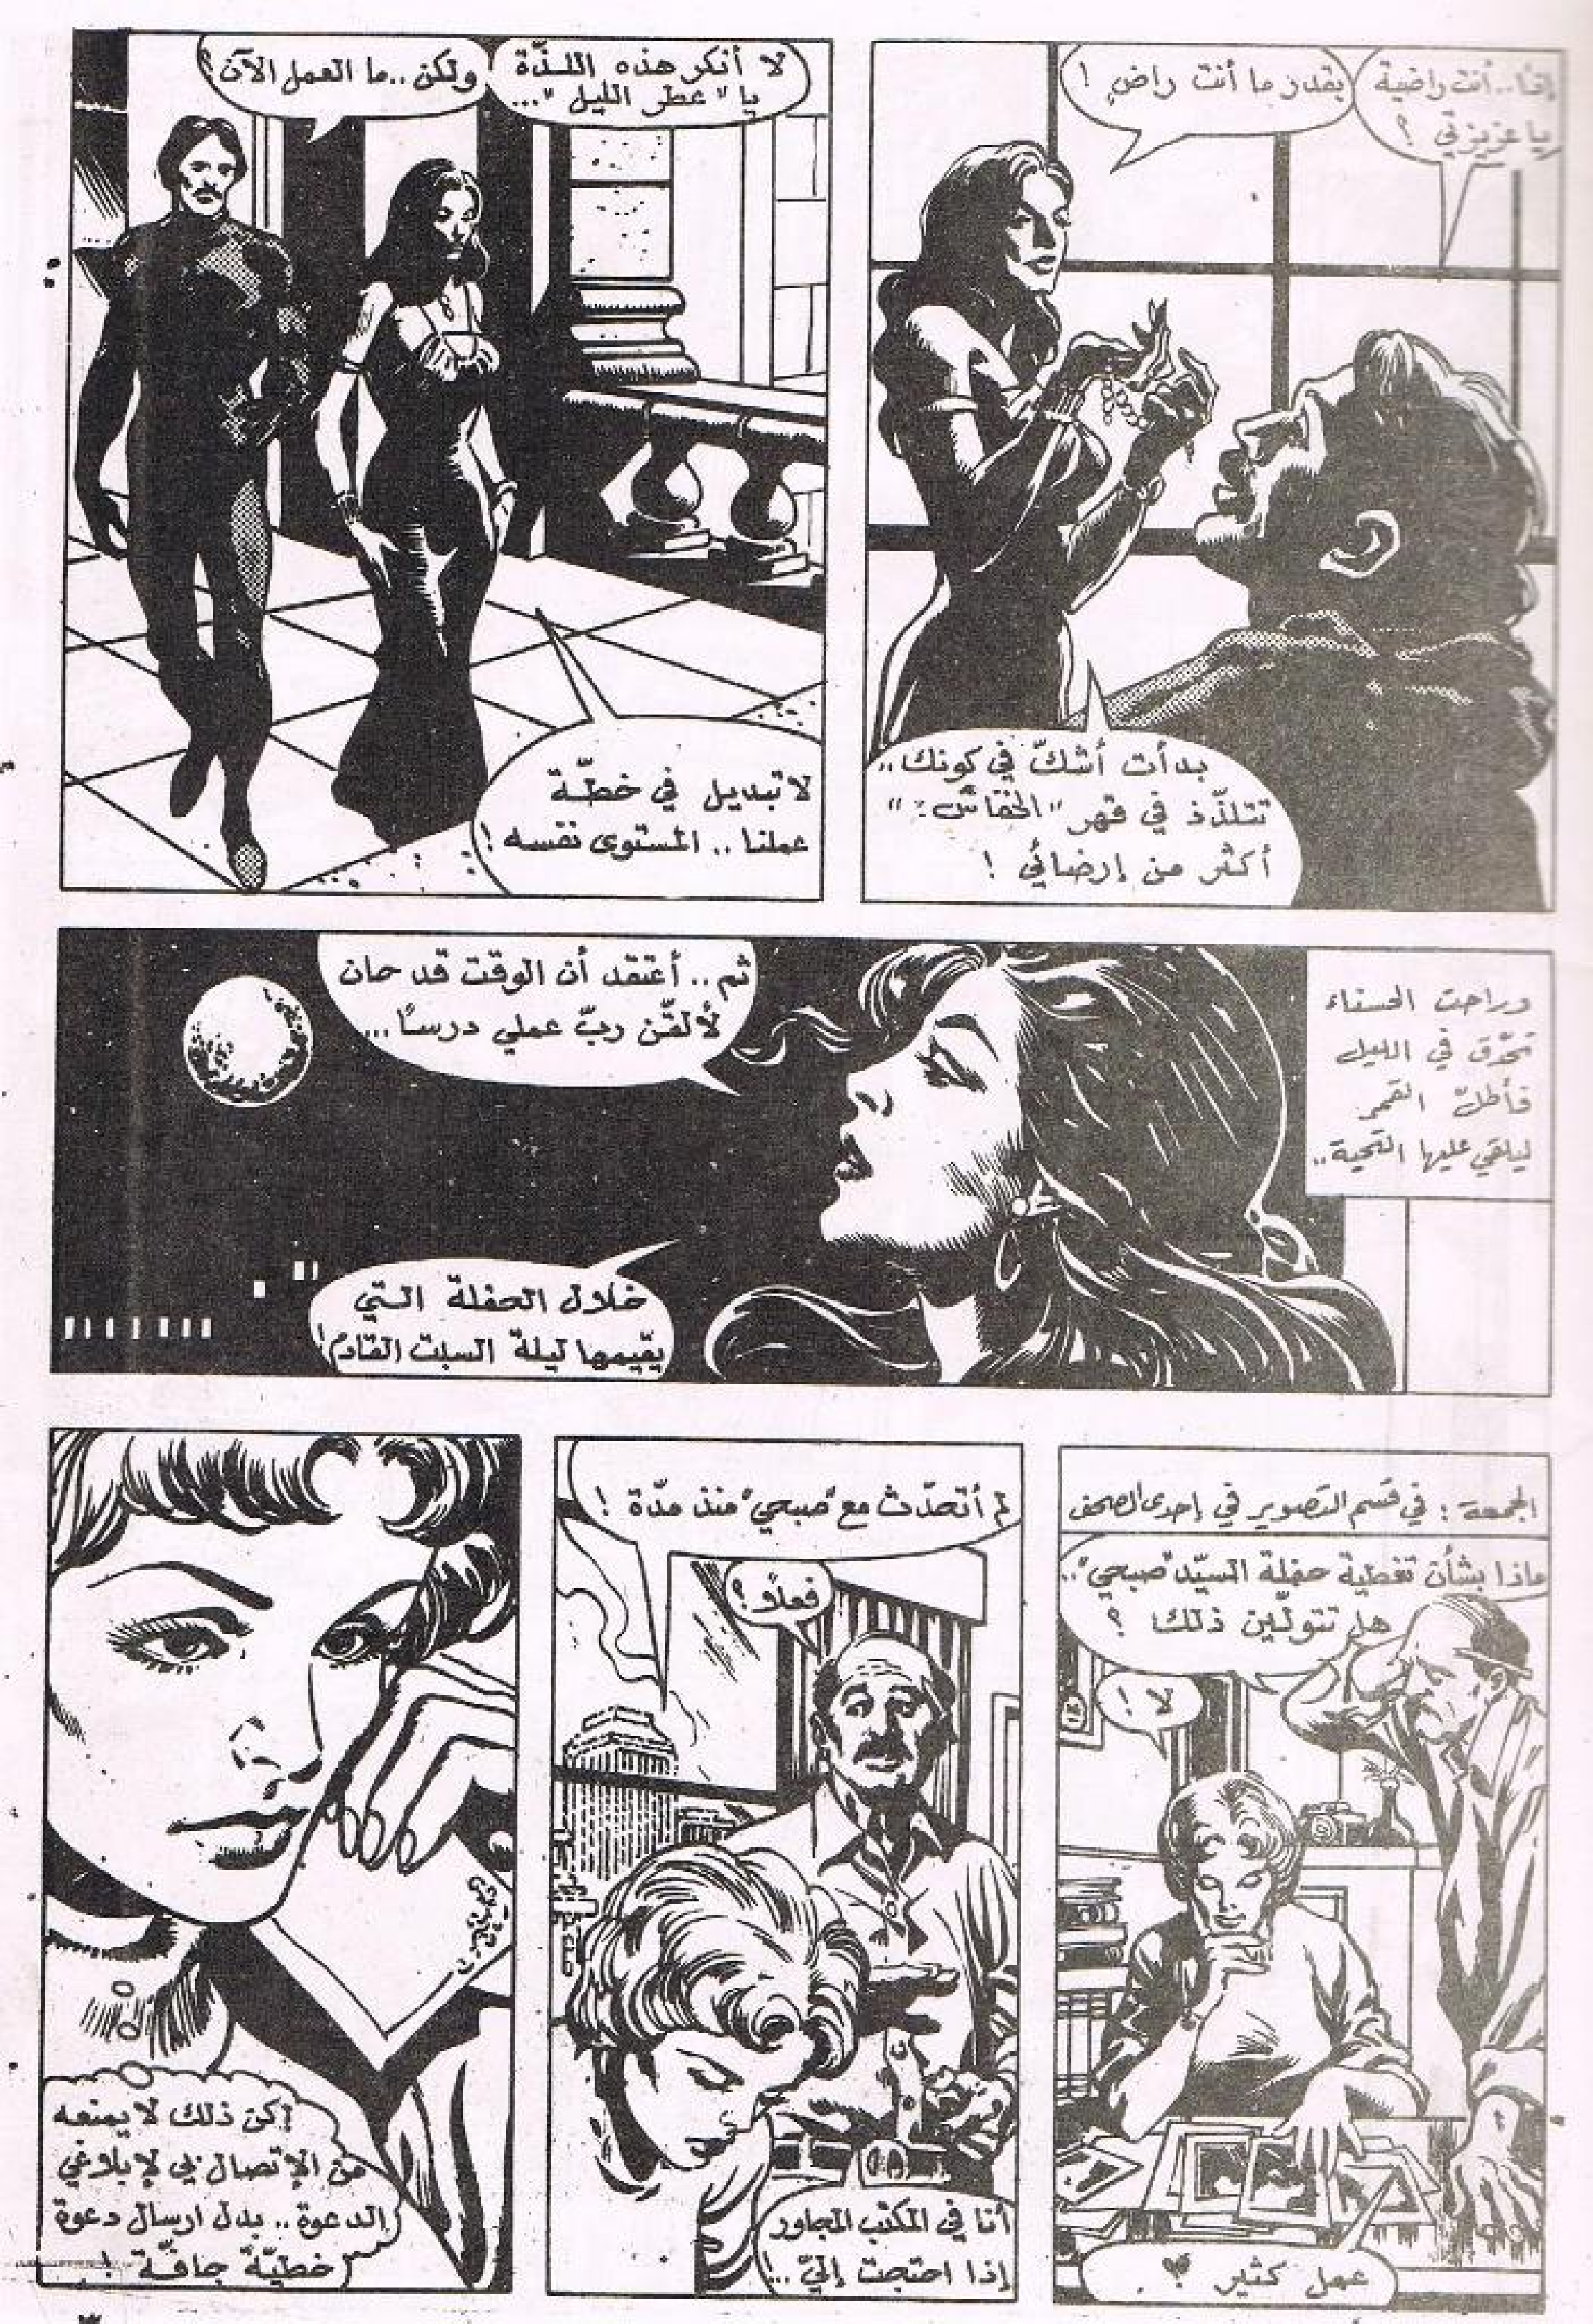 إذًا.. أنت راضية
يا عزيزتي ؟
بقدر ما أنت راضٍ !
بدأت أشكّ في كونك..
تتلذّذ في قهر "الخفاش"
أكثر من إرضائي !
لا أنكر هذه اللذّة
يا "عطر الليل"...
ولكن.. ما العمل الآن؟
لا تبديل في خطّة
عملنا.. المستوى نفسه !
وراحت الحسناء
تحدّق في الليل
فأطلّ القمر
ليلقي عليها التحية..
ثم.. أعتقد أن الوقت قد حان
لألقّن ربّ عملي درسًا...
خلال الحفلة التي
يقيمها ليلة السبت القادم!
الجمعة : في قسم التصوير في إحدى الصحف
ماذا بشأن تغطية حفلة السيّد "صبحي"..
هل تتولّين ذلك ؟
لا !
عمل كثير ؟
لم أتحدّث مع "صبحي" منذ مدّة !
فعلًا؟
أنا في المكتب المجاور
إذا احتجت إليّ..!
لكن ذلك لا يمنعه
من الإتصال بي لإبلاغي
الدعوة.. بدل ارسال دعوة
خطيّة جافّة !
٣